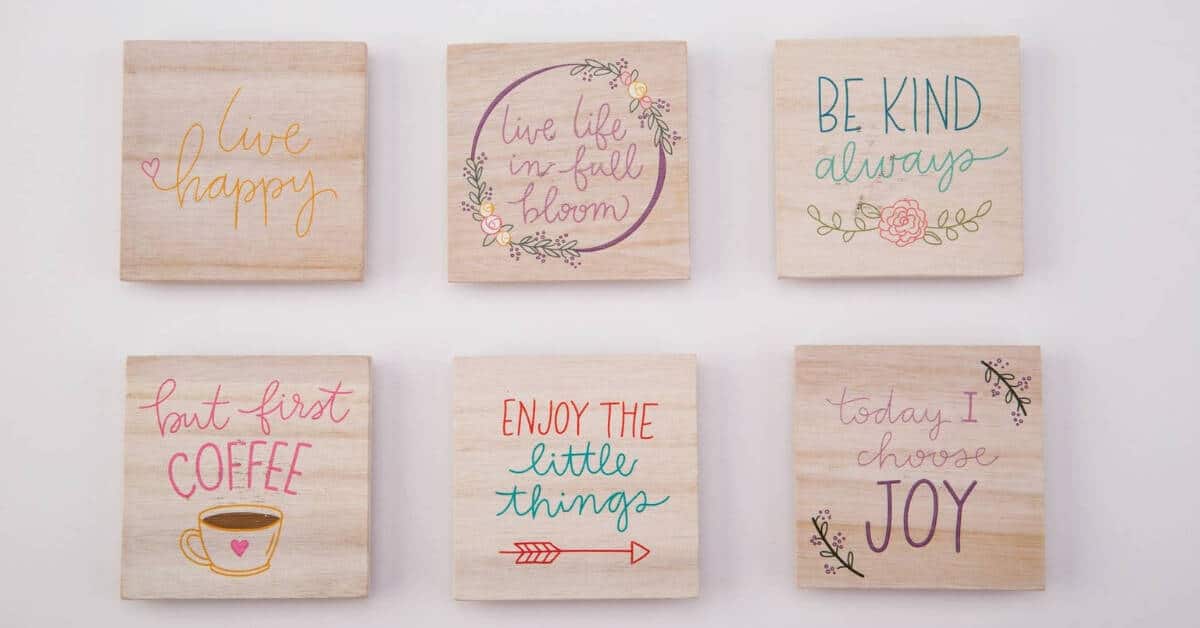 live
happy
live life
in full
bloom
BE KIND
always
but first
COFFEE
ENJOY THE
little
things
today I
choose
JOY